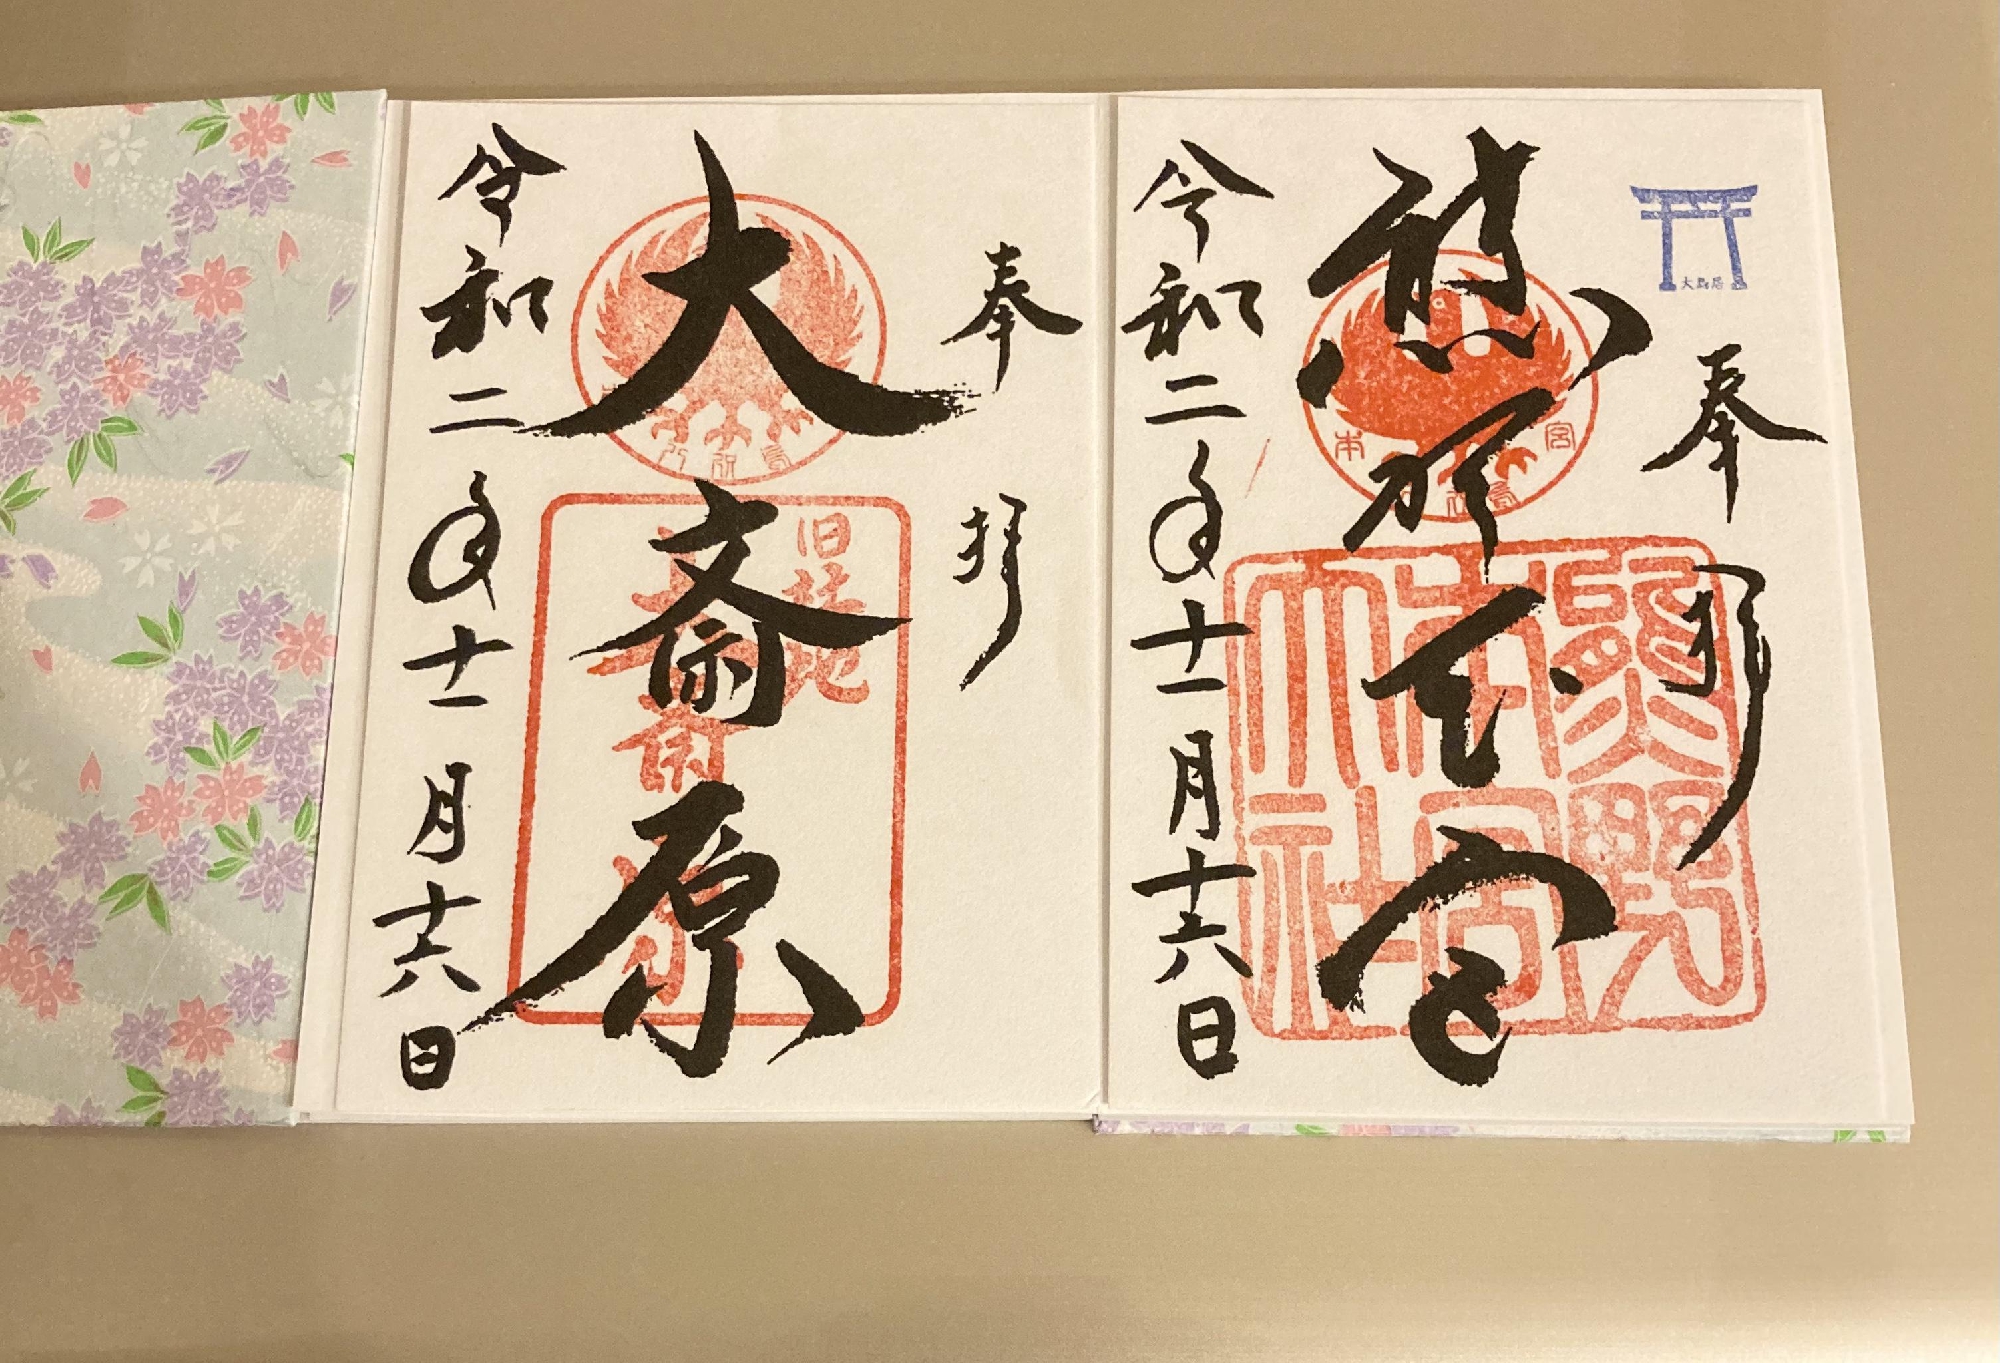 大鳥居
奉拝
熊野本宮
熊野
本宮
大社
令和二年十一月十六日
奉拝
大斎原
旧社地
大斎原
令和二年十一月十六日